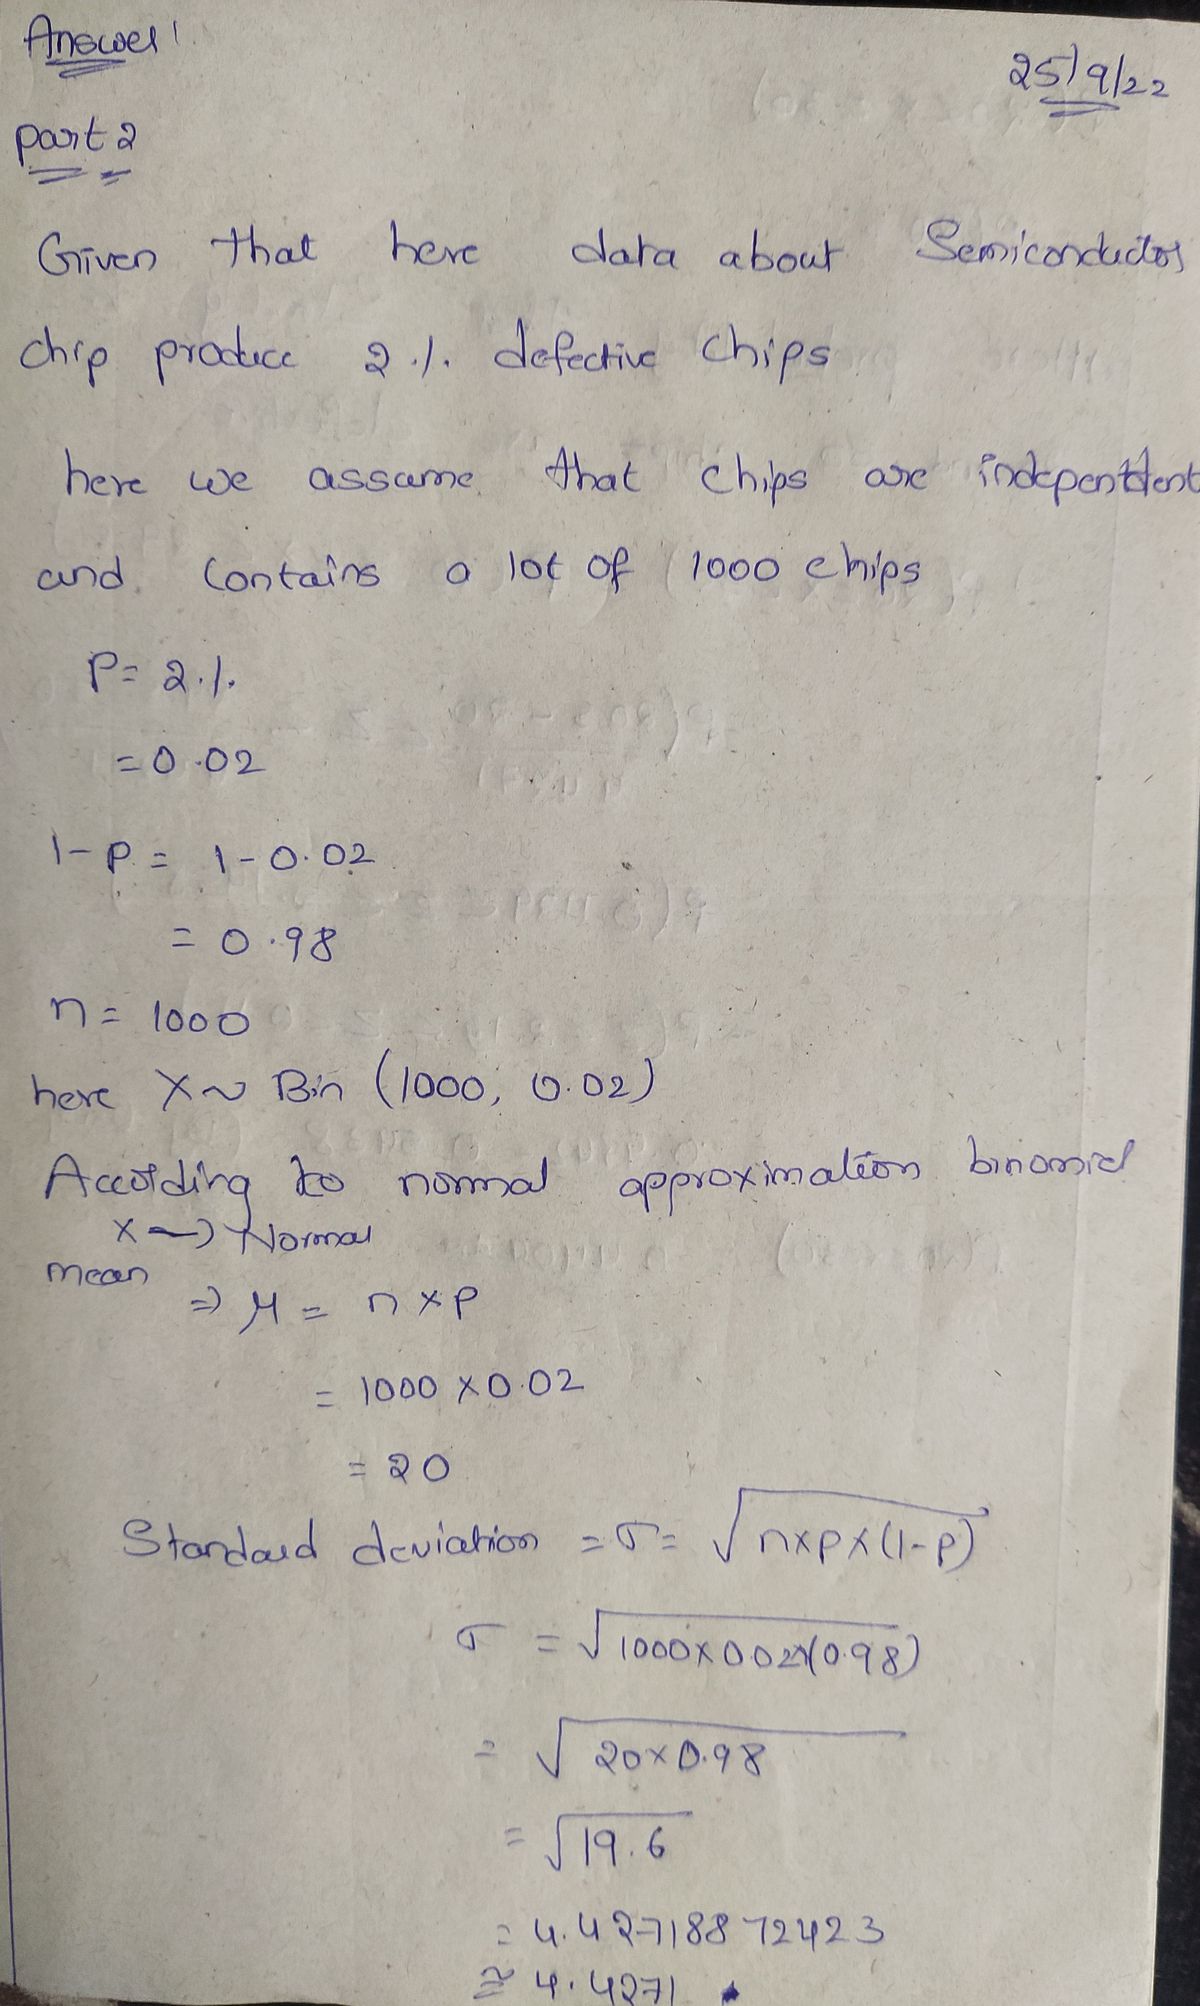 Answer:
25/9/22
part 2
Given that here data about Semiconductor
chip produce 2 ./. defective chips
here we assume that chips are independent
and contains a lot of 1000 chips
P= 2 ./.
=0.02
1-p = 1-0.02
= 0.98
n= 1000
here X~ Bin (1000, 0.02)
According to normal approximation binomial
X → Normal
mean
⇒ μ = n×p
= 1000 ×0.02
= 20
Standard deviation = σ = √n×p×(1-p)
σ = √1000×0.02×(0.98)
= √20×0.98
= √19.6
= 4.427188872423
≅ 4.4271